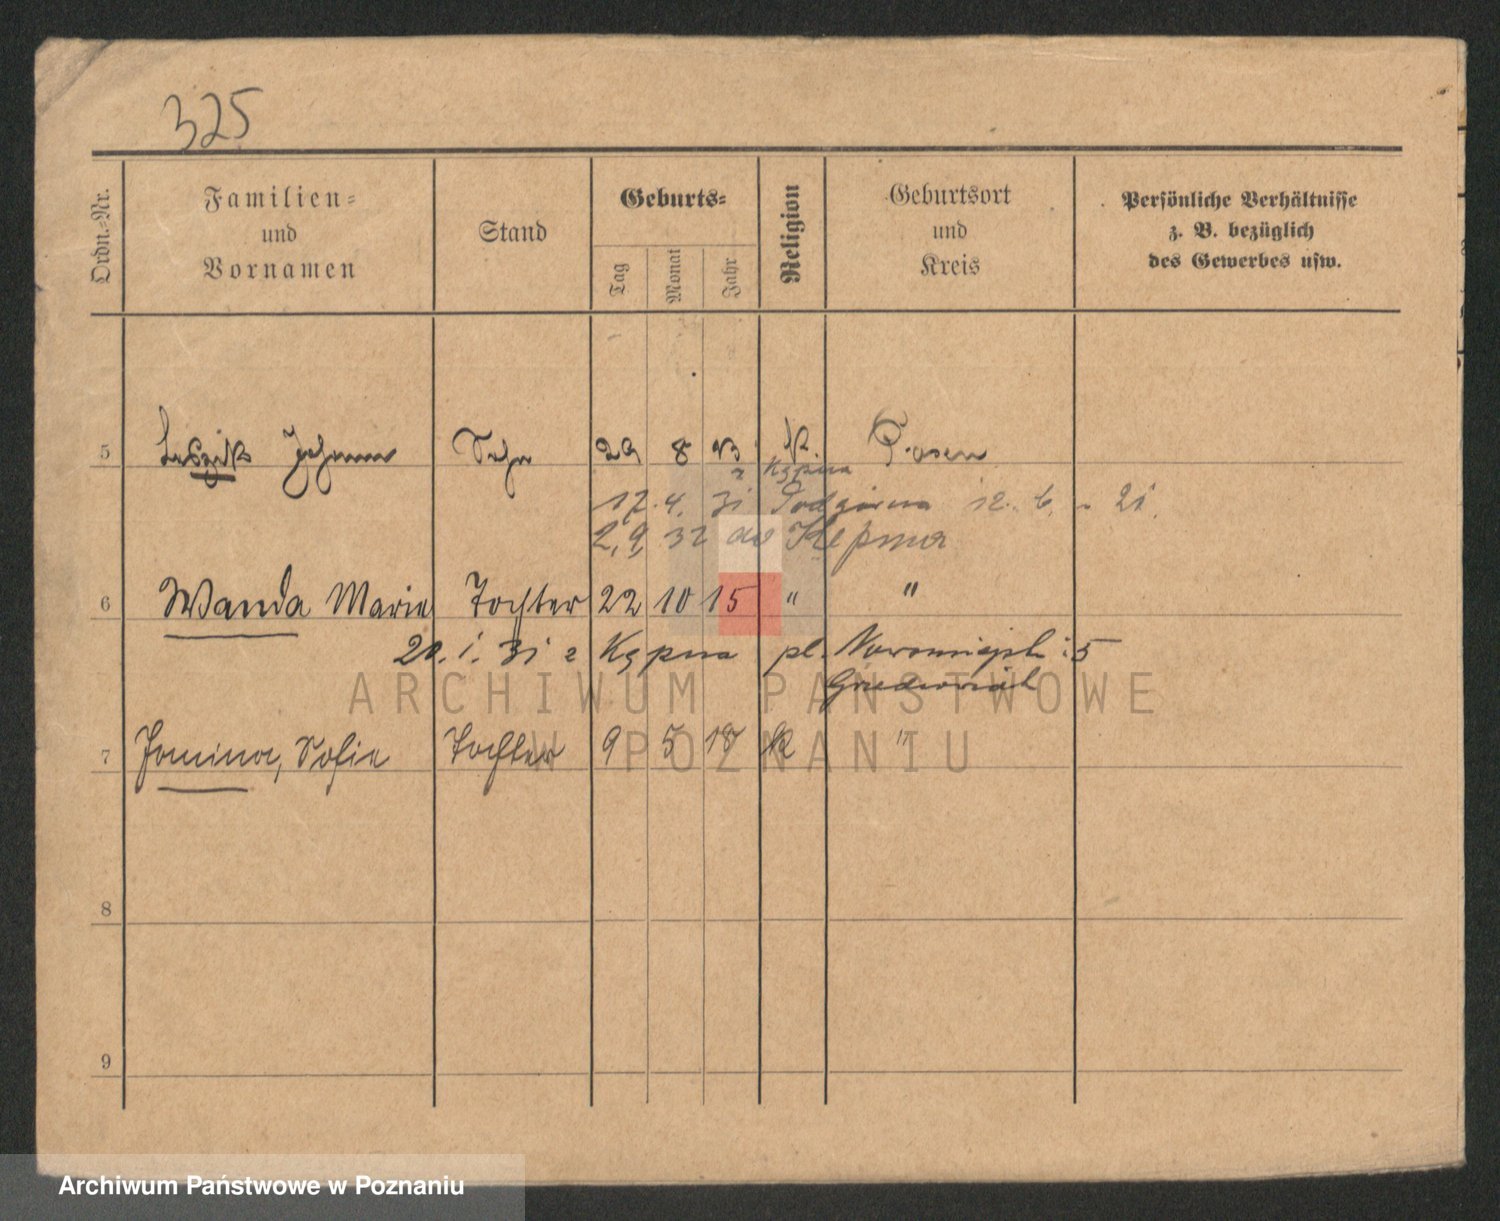 325
Ordn.-Nr.
Familien-
und
Vornamen
Stand
Geburts-
Tag
Monat
Jahr
Religion
Geburtsort
und
Kreis
Persönliche Verhältnisse
z. B. bezüglich
des Gewerbes usw.
5 Johann Sohn 29 8 13 k. Posen
z Kępna
17. 4. 31 Podgórna 12. b. 21
2, 9, 32 do Kępna
6 Wanda Maria Tochter 22 10 15 " "
20. 1. 31 z Kępna pl. 5
7 Janina, Sofie Tochter 9 5 18 k "
8
9
ARCHIWUM PAŃSTWOWE
W POZNANIU
Archiwum Państwowe w Poznaniu